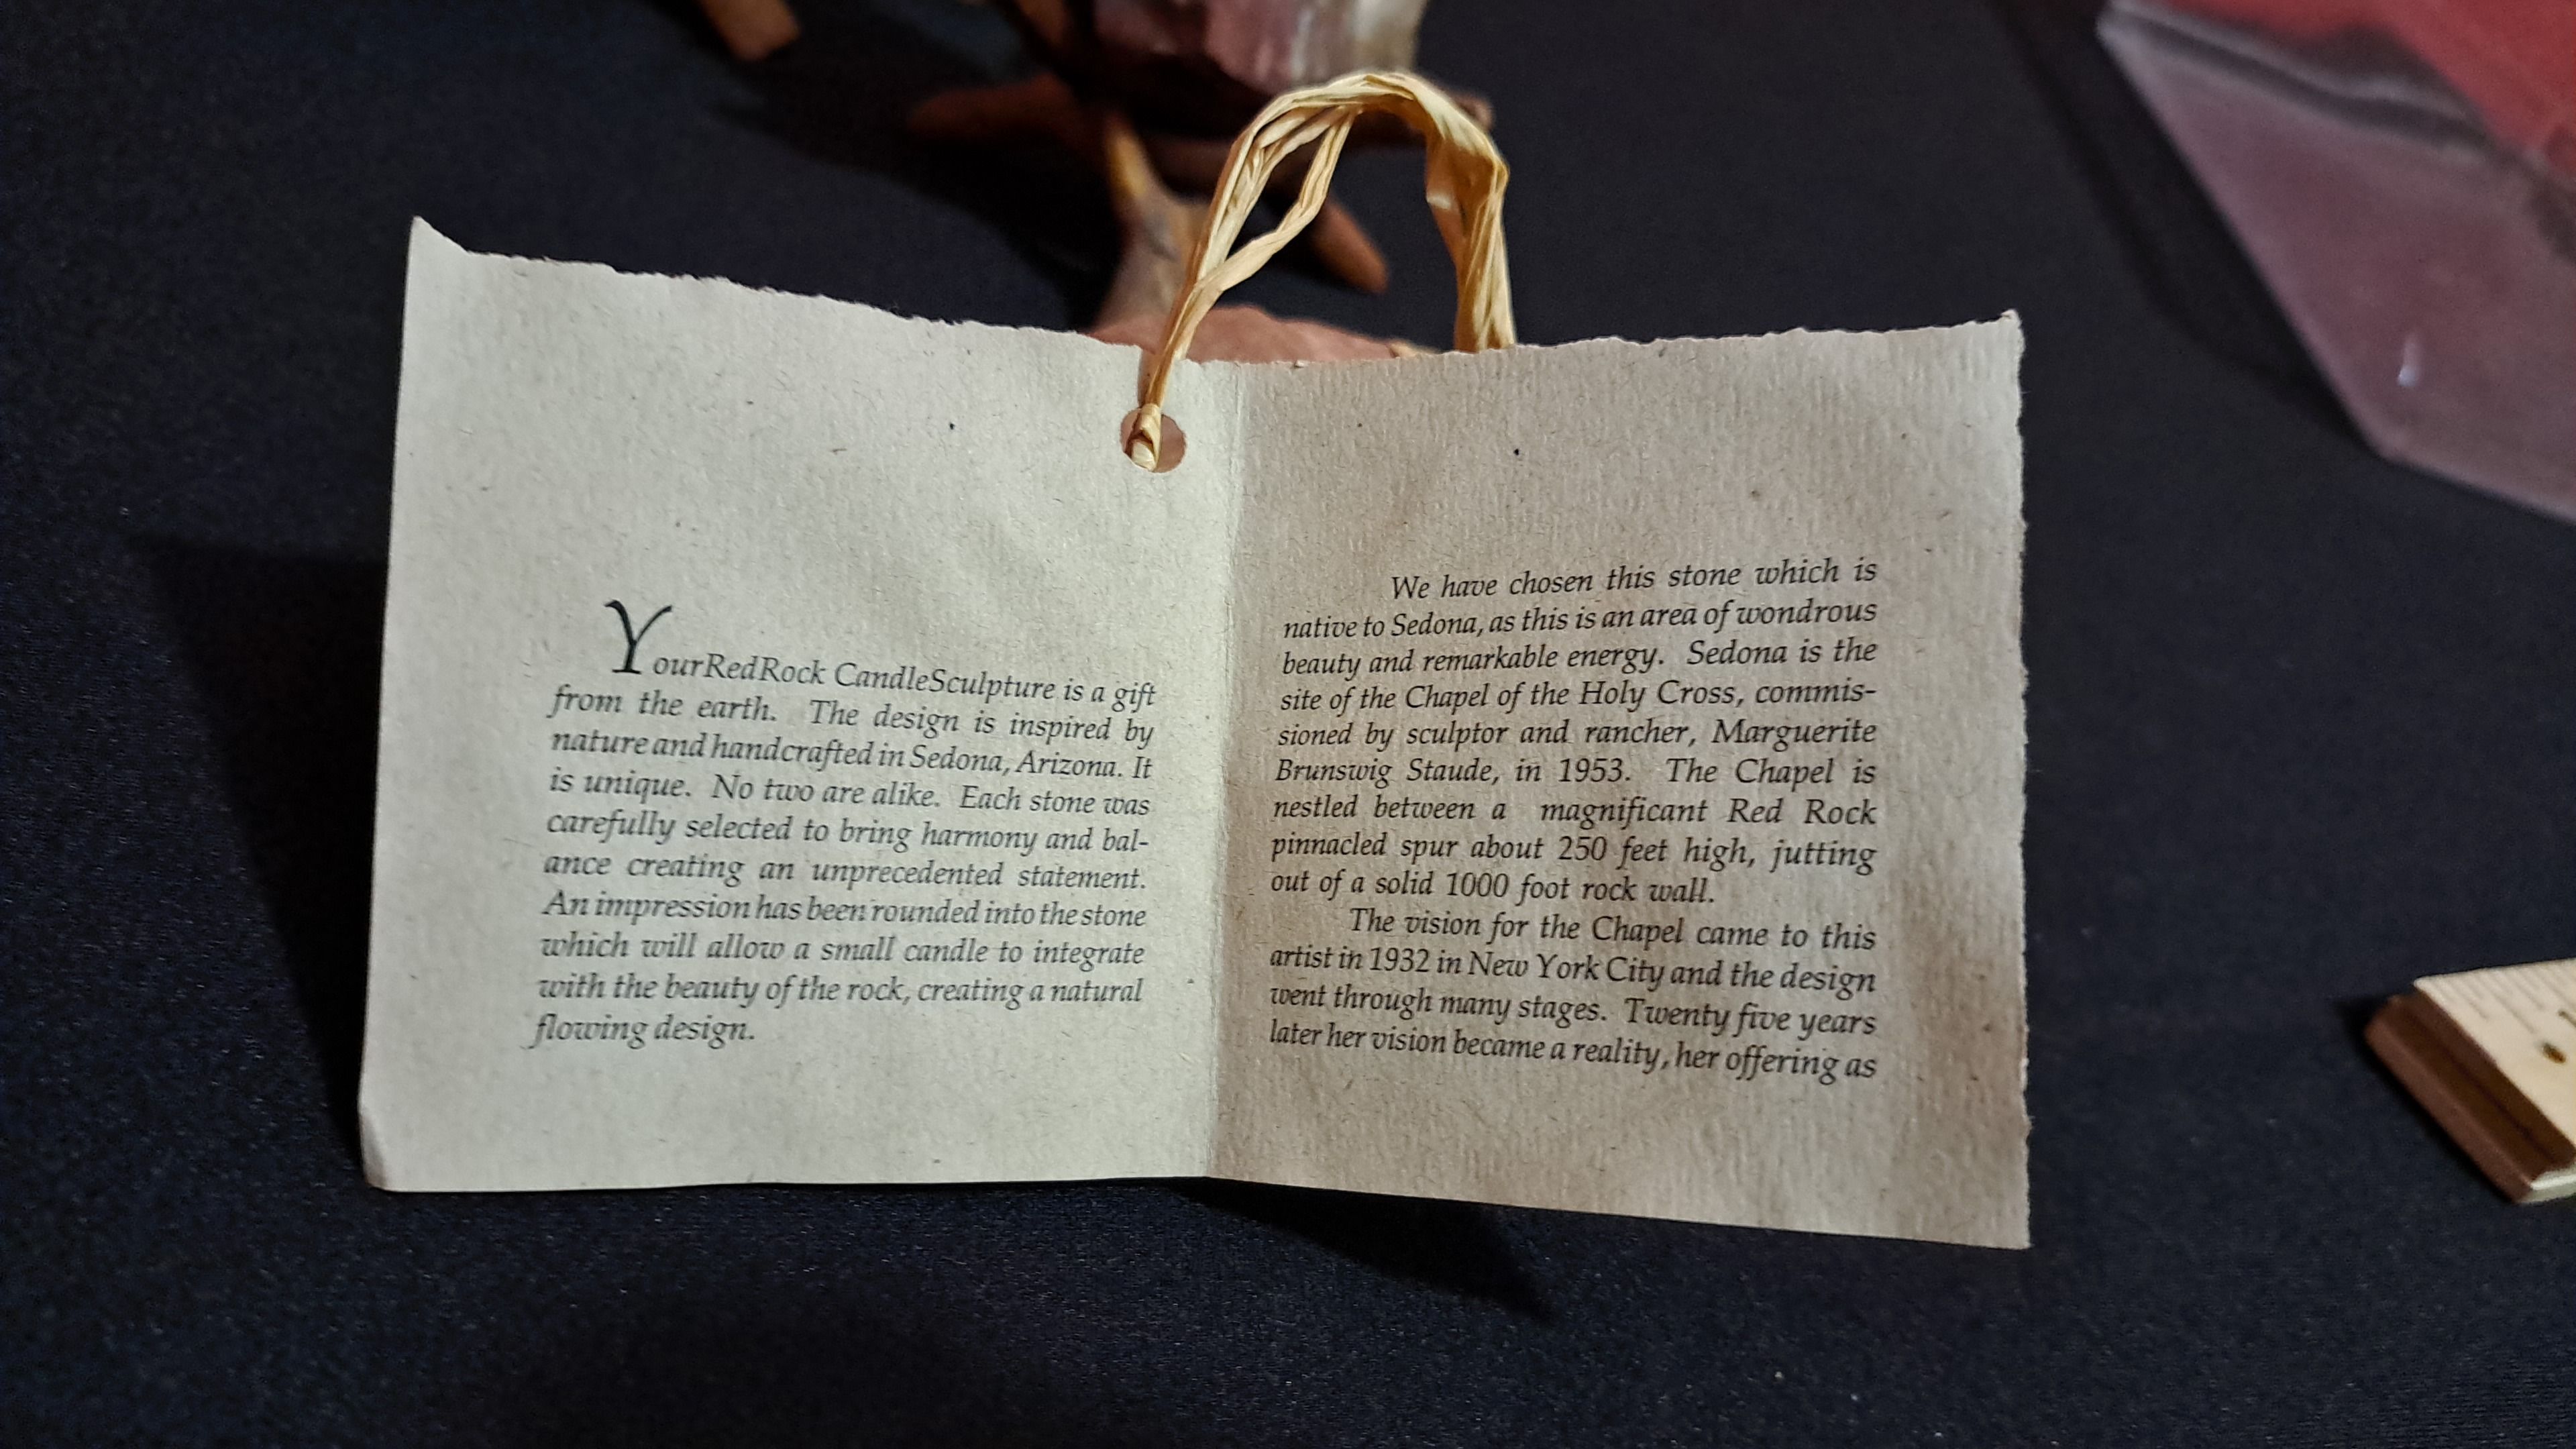 YourRedRock CandleSculpture is a gift
from the earth. The design is inspired by
nature and handcrafted in Sedona, Arizona. It
is unique. No two are alike. Each stone was
carefully selected to bring harmony and bal-
ance creating an unprecedented statement.
An impression has been rounded into the stone
which will allow a small candle to integrate
with the beauty of the rock, creating a natural
flowing design.
We have chosen this stone which is
native to Sedona, as this is an area of wondrous
beauty and remarkable energy. Sedona is the
site of the Chapel of the Holy Cross, commis-
sioned by sculptor and rancher, Marguerite
Brunswig Staude, in 1953. The Chapel is
nestled between a magnificant Red Rock
pinnacled spur about 250 feet high, jutting
out of a solid 1000 foot rock wall.
The vision for the Chapel came to this
artist in 1932 in New York City and the design
went through many stages. Twenty five years
later her vision became a reality, her offering as